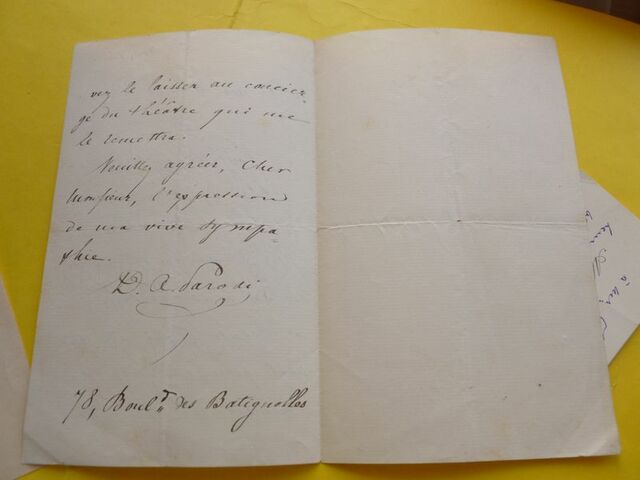 vez le laisser au concier-
ge du théâtre qui me
le remettra.
Veuillez agréer, cher
Monsieur, l'expression
de ma vive sympa
thie.
D. A. Parodi
78, Boulᵗ des Batignolles
à